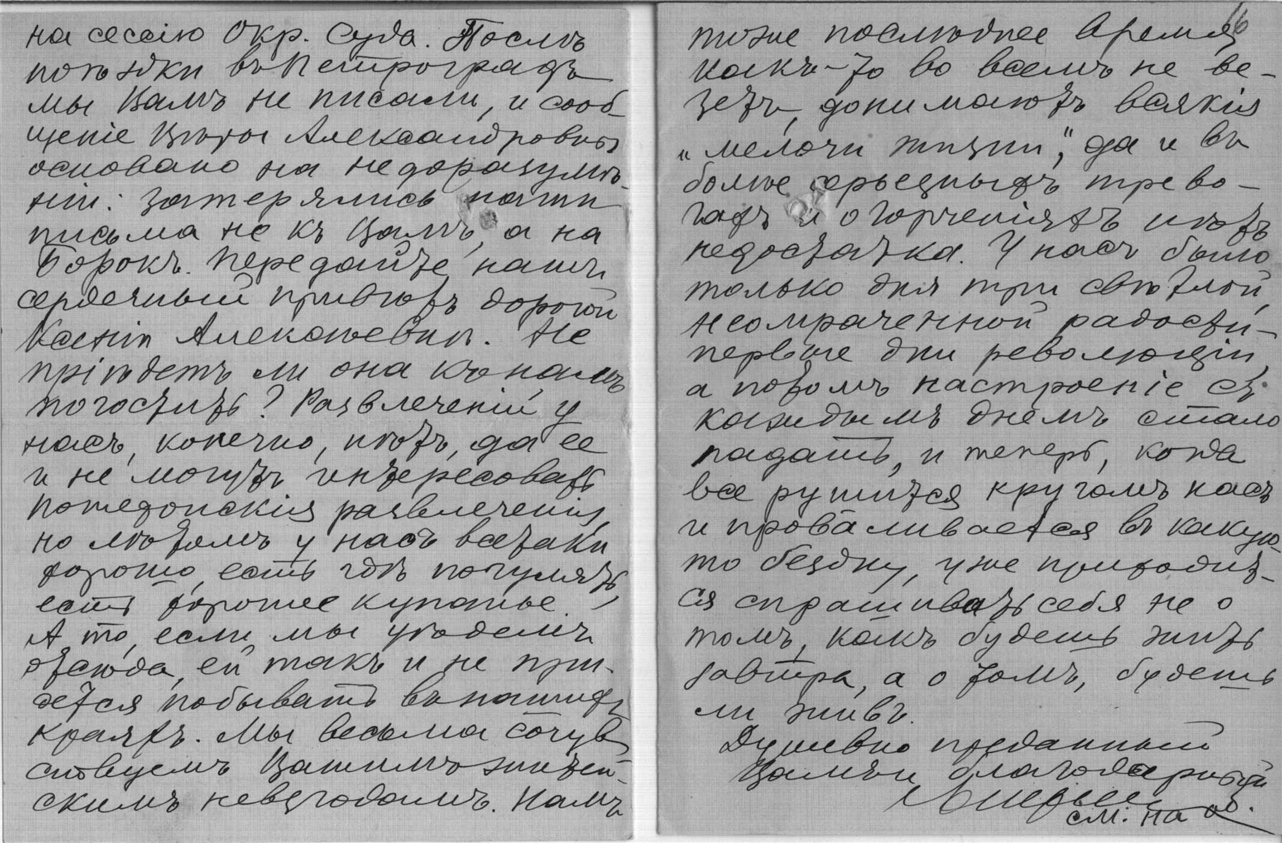 на сессію Окр. Суда. Послѣ
поѣздки въ Петроградъ
мы Вамъ не писали, и сооб-
щеніе Вѣры Александровны
основано на недоразумѣ-
ніи: затерялись наши
письма не къ Вамъ, а на
Борокъ. Передайте нашъ
сердечный привѣтъ дорогой
Ксеніи Алексѣевнѣ. Не
пріѣдетъ ли она къ намъ
погостить? Развлеченій у
насъ, конечно, нѣтъ, да ее
и не могутъ интересовать
развлеченія,
но лѣтомъ у насъ всетаки
хорошо, есть гдѣ погулять,
есть хорошее купанье.
А то, если мы уѣдемъ
отсюда, ей такъ и не при-
дется побывать въ нашихъ
краяхъ. Мы весьма сочув-
ствуемъ Вашимъ житей-
скимъ невзгодамъ. Намъ
16
тоже послѣднее время
какъ-то во всемъ не ве-
зетъ, донимаютъ всякія
„мелочи жизни", да и въ
болѣе серьезныхъ трево-
гахъ и огорченіяхъ нѣтъ
недостатка. У насъ было
только дня три свѣтлой,
неомраченной радости -
первые дни революціи,
а потомъ настроеніе съ
каждымъ днемъ стало
падать, и теперь, когда
все рушится кругомъ насъ
и проваливается въ какую-
то бездну, уже приходит-
ся спрашивать себя не о
томъ, какъ будешь жить
завтра, а о томъ, будешь
ли живъ.
Душевно преданный
Вамъ и благодарный
см. на об.